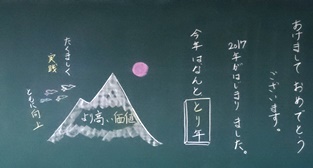 あけまして おめでとう
ございます。
2017
年がはじまりました。
今年はなんと とり年
より高い価値
たくましく
実践
ともに向上